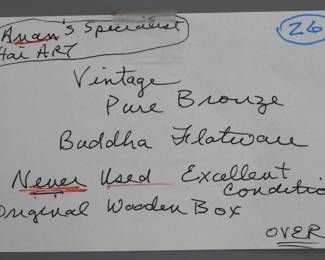 Anan's Specialist
Thai ART
26
Vintage
Pure Bronze
Buddha Flatware
Never Used Excellent
Condition
Original Wooden Box
OVER